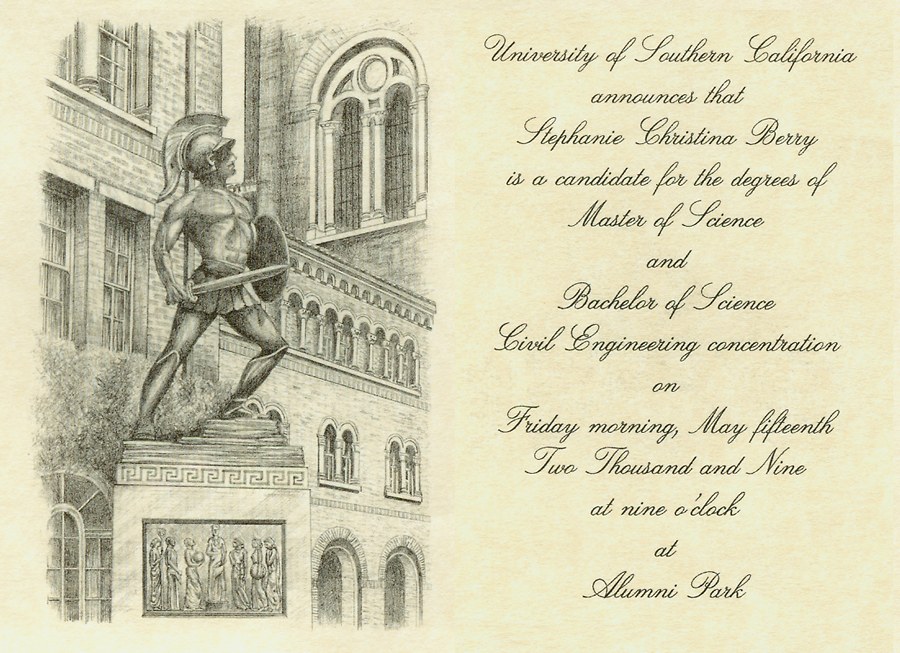 University of Southern California
announces that
Stephanie Christina Berry
is a candidate for the degrees of
Master of Science
and
Bachelor of Science
Civil Engineering concentration
on
Friday morning, May fifteenth
Two Thousand and Nine
at nine o'clock
at
Alumni Park